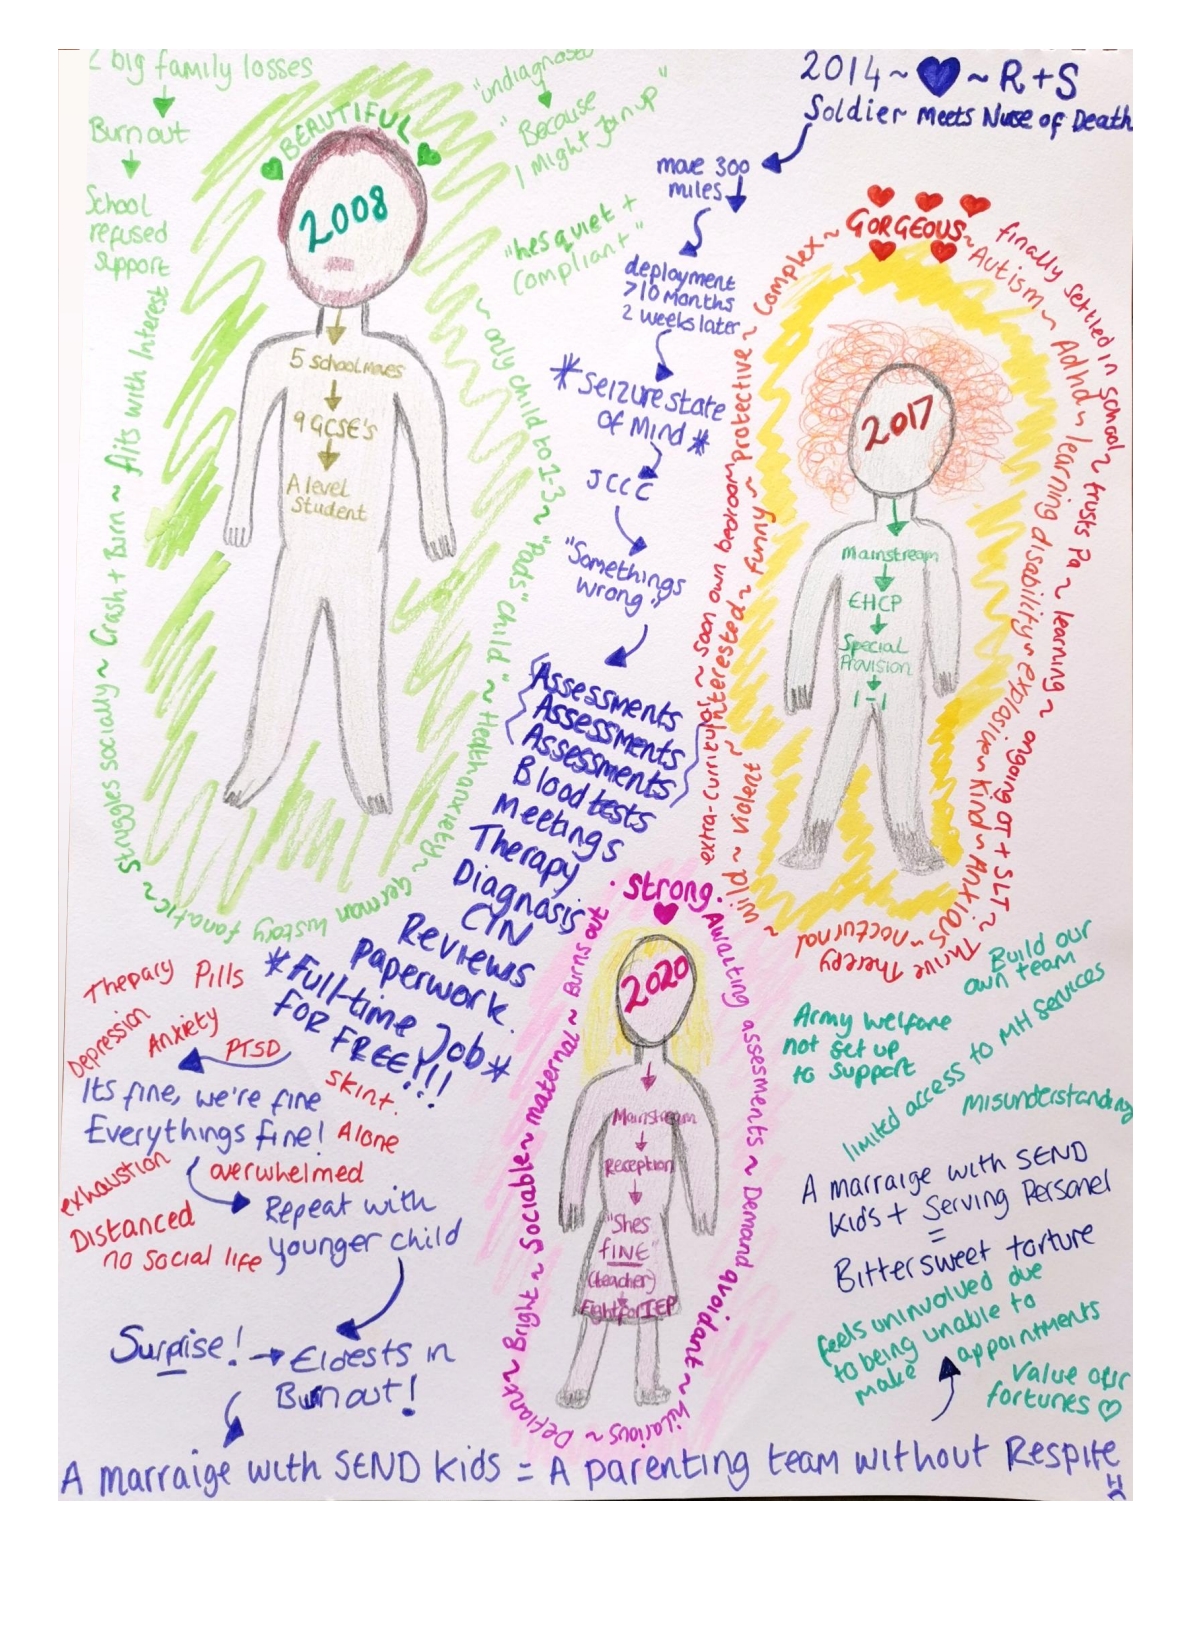 2 big family losses
Burnout
School
refused
support
BEAUTIFUL
2008
5 school moves
9 GCSE's
A level
Student
"undiagnosed
"Because
I might join up"
"hes quiet +
Compliant"
~ only child to 1-3 ~ "Pads" child" ~ Health anxiety ~ German history fanatic ~ Struggles socially ~ Crash + Burn ~ flits with Interest
2014 ~ ~ R + S
Soldier Meets Nurse of Death
move 300
miles
deployment
>10 Months
2 weeks later
* Seizure state
of Mind *
JCCC
"Somethings
wrong"
Assessments
Assessments
Assessments
Blood tests
Meetings
Therapy
Diagnosis
CIN
Reviews
Paperwork.
*Full-time Job*
FOR FREE!!!!
GORGEOUS
~ Autism ~ Adhd ~ learning disability ~ explosive ~ Kind ~ Anxious ~ nocturnal
~ Wild ~ Violent ~ Interested ~ funny ~ protective ~ Complex ~
finally settled in school ~ trusts Pa ~ learning ~ ongoing OT + SLT ~ Thrive Therepy
extra-curriculars ~ soon own bedroom
2017
Mainstream
EHCP
Special
Provision
1-1
Strong.
Awaiting assessments ~ Demand avoidant ~ hilarious ~ Defiant ~ Bright ~ Sociable ~ maternal ~ Burns out
2020
Mainstream
Reception
"Shes
FINE"
(teacher)
Fight for IEP
Thepary Pills
Depression
Anxiety
PTSD
Its fine, we're fine
skint.
Everythings fine!
Alone
exhaustion
overwhelmed
Distanced
no social life
Repeat with
younger child
Surprise!
Eldests in
Burnout!
Build our
own team
Army welfare
not set up
to support
limited access to MH services
misunderstanding
A marraige with SEND
Kids + Serving Personel
=
Bittersweet torture
feels uninvolved due
to being unable to
make appointments
Value our
fortunes
A marraige with SEND kids = A parenting team without Respite